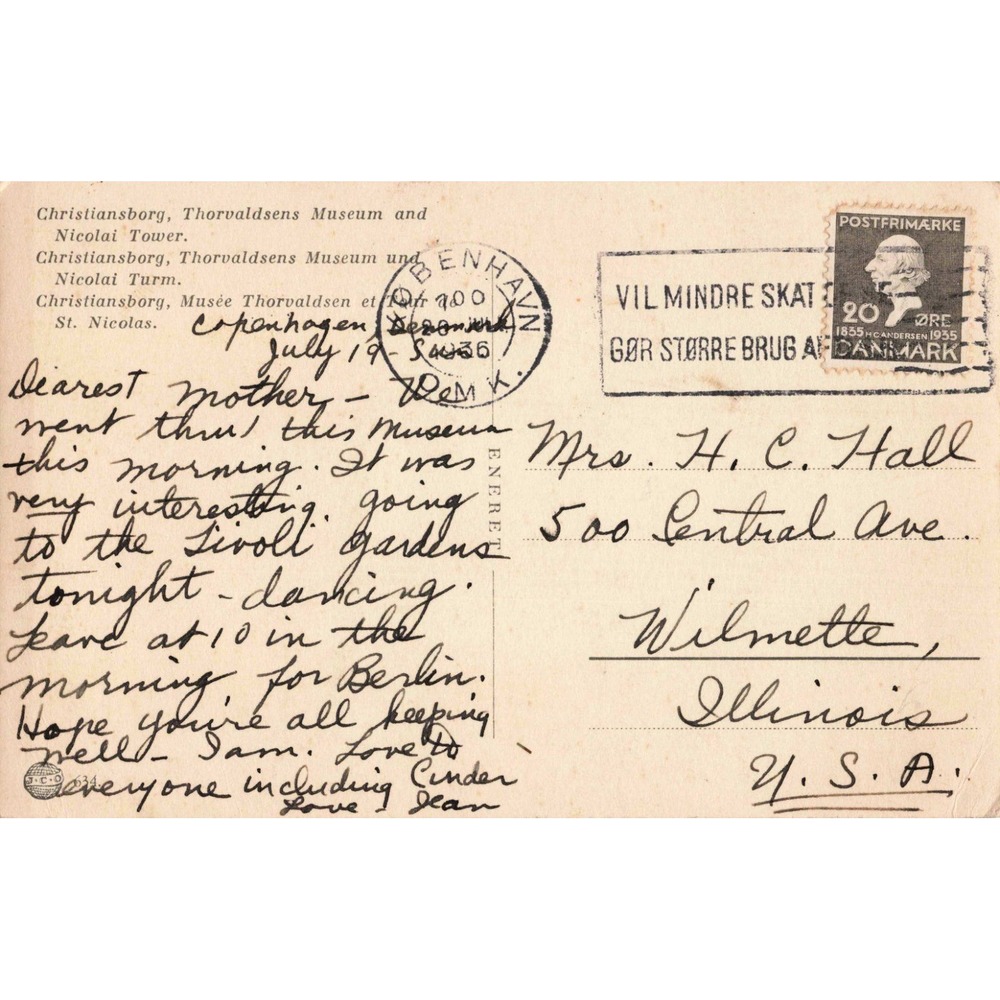 Christiansborg, Thorvaldsens Museum and
Nicolai Tower.
Christiansborg, Thorvaldsens Museum und
Nicolai Turm.
Christiansborg, Musée Thorvaldsen et Tour de
St. Nicolas.
Copenhagen, Denmark
July 19 - Sun
Dearest Mother - We
went thru' this Museum
this morning. It was
very interesting. going
to the Tivoli Gardens
tonight - dancing.
Leave at 10 in the
morning for Berlin.
Hope you're all keeping
well - I am. Love to
everyone including Cinder
Love - Jean
J.C.O
634
ENERET
KØBENHAVN
7 00
1936
OMK.
VIL MINDRE SKAT
GØR STØRRE BRUG AF
POSTFRIMÆRKE
20 ØRE
1835 H.C. ANDERSEN 1935
DANMARK
Mrs. H. C. Hall
500 Central Ave.
Wilmette,
Illinois
U. S. A.